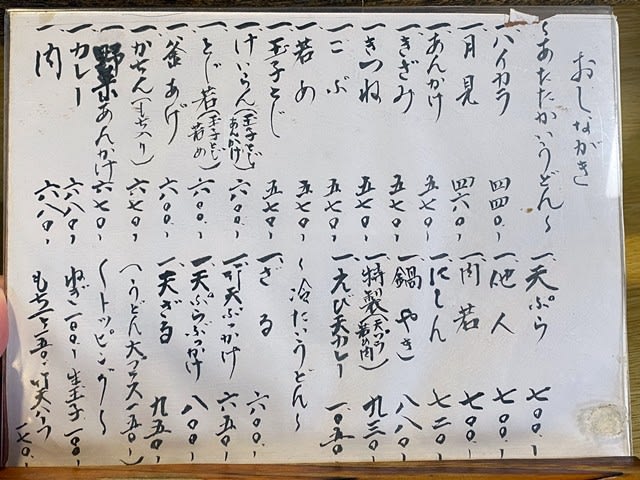 おしながき
〜あたたかいうどん〜
一、ハイカラ 四四〇、
一、月見 四六〇、
一、あんかけ 五七〇、
一、きざみ 五七〇、
一、きつね 五七〇、
一、こぶ 五七〇、
一、若め 五七〇、
一、玉子とじ 五七〇、
一、けいらん(玉子とじあんかけ) 六〇〇、
一、とじ若(玉子とじ若め) 六〇〇、
一、釜あげ 六〇〇、
一、かせん(もち入り) 六五〇、
一、野菜あんかけ 六七〇、
一、カレー 六八〇、
一、肉 六八〇、
一、天ぷら 七〇〇、
一、他人 七〇〇、
一、肉若 七〇〇、
一、にしん 七二〇、
一、鍋やき 八八〇、
一、特製(天プラ若め肉) 九三〇、
一、えび天カレー 一〇五〇
〜冷たいうどん〜
一、ざる 六〇〇、
一、竹天ぶっかけ 六五〇、
一、天ぷらぶっかけ 八〇〇、
一、天ざる 九五〇、
(うどん大プラス一五〇、)
〜トッピング〜
ねぎ一〇〇、生玉子一〇〇、
もち一ケ五〇、竹天ハーフ一七〇、